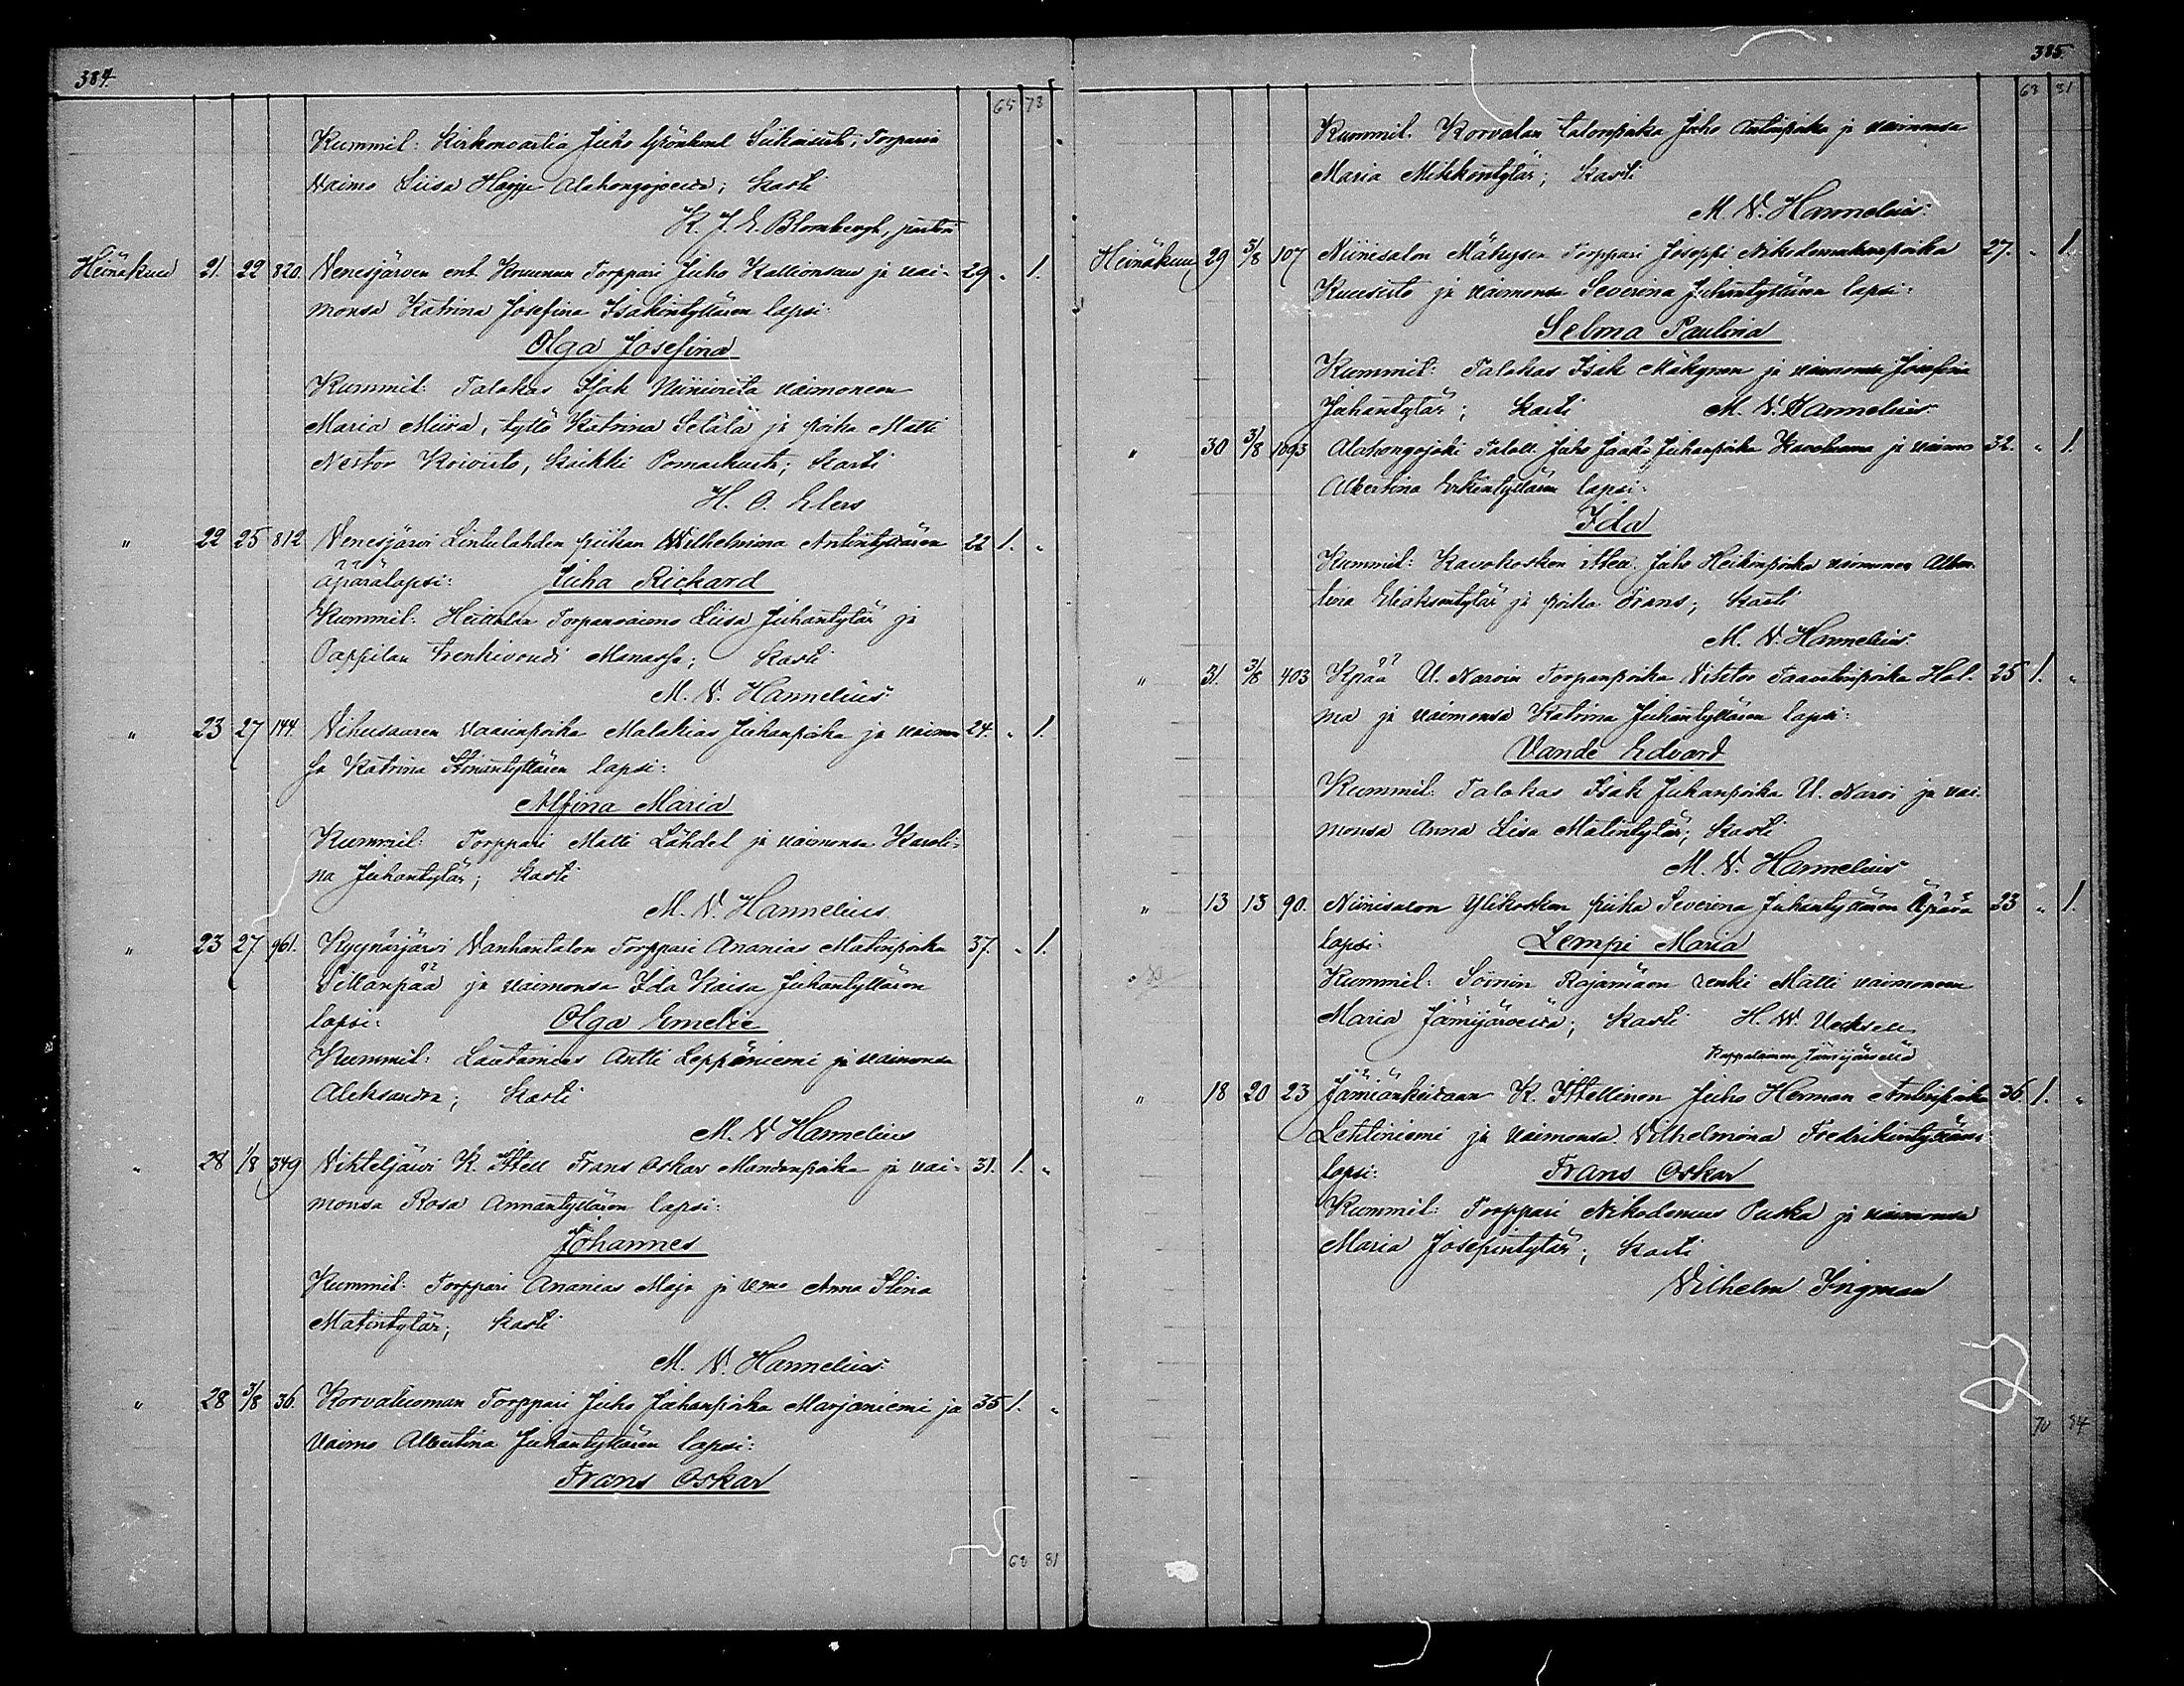 384.
65 73
Kummit: Kirkonvartia Juho Grönlund Siikaisista, Torparin
Vaimo Liisa Harju Alahongojoelta; Kasti
K. J. E. Blombergh, pastori
Heinäkuu 21. 22 820. Venesjärven ent. Torppari Juho Kallionsuu ja vai- 29. " 1.
monsa Katrina Josefina Isakintyttären lapsi:
Olga Josefina
Kummit: Talokas Isak Niinivita vaimoneen
Maria Miira, tyttö Katrina Selälä ja poika Matti
Nestor Koivisto, kaikki Pomarkusta; Kasti
H. O. Elers
" 22 25 812 Venesjärvi Lintulahden piikan Wilhelmina Antintyttären 22 1. "
äpärälapsi: Juha Richard
Kummit: Torpanvaimo Liisa Juhantytär ja
Pappilan trenkivouti Manasse; Kasti
M. V. Hannelius
" 23 27 144. Vihusaaren Malakias Juhanpoika ja vaimon 24. " 1.
sa Katrina lapsi:
Alfina Maria
Kummit: Torppari Matti Lähdet ja vaimonsa Karoli-
na Juhantytär; Kasti
M. V. Hannelius
" 23 27 961. Kyynärjärvi Vanhantalon Torppari Ananias Matinpoika 37. " 1.
Sillanpää ja vaimonsa Ida Kaisa Juhantyttären
lapsi: Olga Emelie
Kummit: Lautamies Antti Leppäniemi ja vaimonsa
Aleksandra; Kasti
M. V. Hannelius
" 28 1/8 349 Vihteljärvi K. Itsell Frans Oskar Mandanpoika ja vai- 31. 1. "
monsa Rosa Annantyttären lapsi:
Johannes
Kummit: Torppari Ananias Maja ja Vmo Anna Stina
Matintytär; Kasti
M. V. Hannelius
" 28 3/8 36. Korvaluoman Torppari Juho Juhanpoika Marjaniemi ja 35 1. "
Vaimo Albertina Juhantyttären lapsi:
Frans Oskar
68 81
385.
63 31
Kummit. Korvalan talonpoika Juho Antinpoika ja vaimonsa
Maria Mikkontytär; Kasti
M. V. Hannelius
Heinäkuu 29 3/8 107 Niinisalon Mäkysen Torppari Joseppi Nikodemuksenpoika 27. " 1.
Kuusisto ja vaimonsa Severina Juhantyttären lapsi:
Selma Paulina
Kummit: Talokas Isak Mäkynen ja vaimonsa Josefina
Juhantytär; Kasti M. V. Hannelius
" 30 3/8 1093 Alahongojoki Talell. Juho Jaako Juhanpoika ja vaimo 32. " 1.
Albertina Erkintyttären lapsi:
Ida
Kummit: Kavokosken Juho Heikinpoika vaimoneen Alber-
tina Eliaksentytär ja poika Frans; Kasti
M. V. Hannelius
" 31. 3/8 403 Kpää U. Narvin Torpanpoika Vihtor Taavetinpoika Hol- 25 1. "
ma ja vaimonsa Katrina Juhantyttären lapsi:
Vande Edvard
Kummit: Talokas Isak Juhanpoika U. Narvi ja vai-
monsa Anna Lisa Matintytär; Kasti
M. V. Hannelius
" 13 13 90. Niinisalon Ylikosken piika Severina Juhantyttären Äpärä 23 " 1.
lapsi: Lempi Maria
Kummit: Soinin Rajamäen renki Matti vaimoneen
Maria Jämijärveltä; Kasti H. W.
Kappalainen Jämijärvellä
" 18 20 23 Jämiänkeitaan K. Itsellinen Juho Herman Antinpoika 36 1. "
Lehtiniemi ja Vaimonsa Vilhelmina Fredrikintyttären
lapsi: Frans Oskar
Kummit: Torppari Nikodemus Puska ja vaimonsa
Maria Josepintytär; Kasti
Vilhelm Ingman
70 84